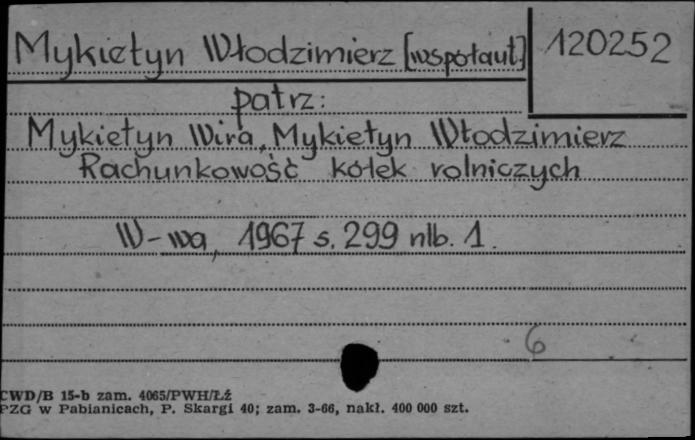 Mykietyn Włodzimierz [współaut] 120252
patrz:
Mykietyn Wira, Mykietyn Włodzimierz
Rachunkowość kółek rolniczych
W-wa, 1967 s. 299 nlb. 1.
6
CWD/B 15-b zam. 4065/PWH/Łź
PZG w Pabianicach, P. Skargi 40; zam. 3-66, nakł. 400 000 szt.